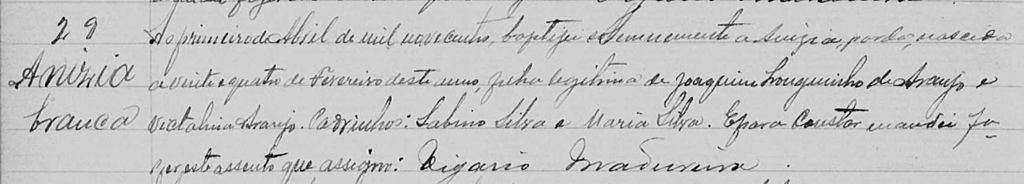 28
Anizia
branca
Ao primeiro de Abril de mil novecentos, baptizei solemnemente a Anizia, parda, nascida
a vinte e quatro de Fevereiro deste anno, filha legitima de Joaquim Longuinho de Araujo e
Victalina Araujo. Padrinhos: Sabino Silva e Maria Silva. E para constar mandei fa-
zer este assento que assigno: Vigario Madureira.